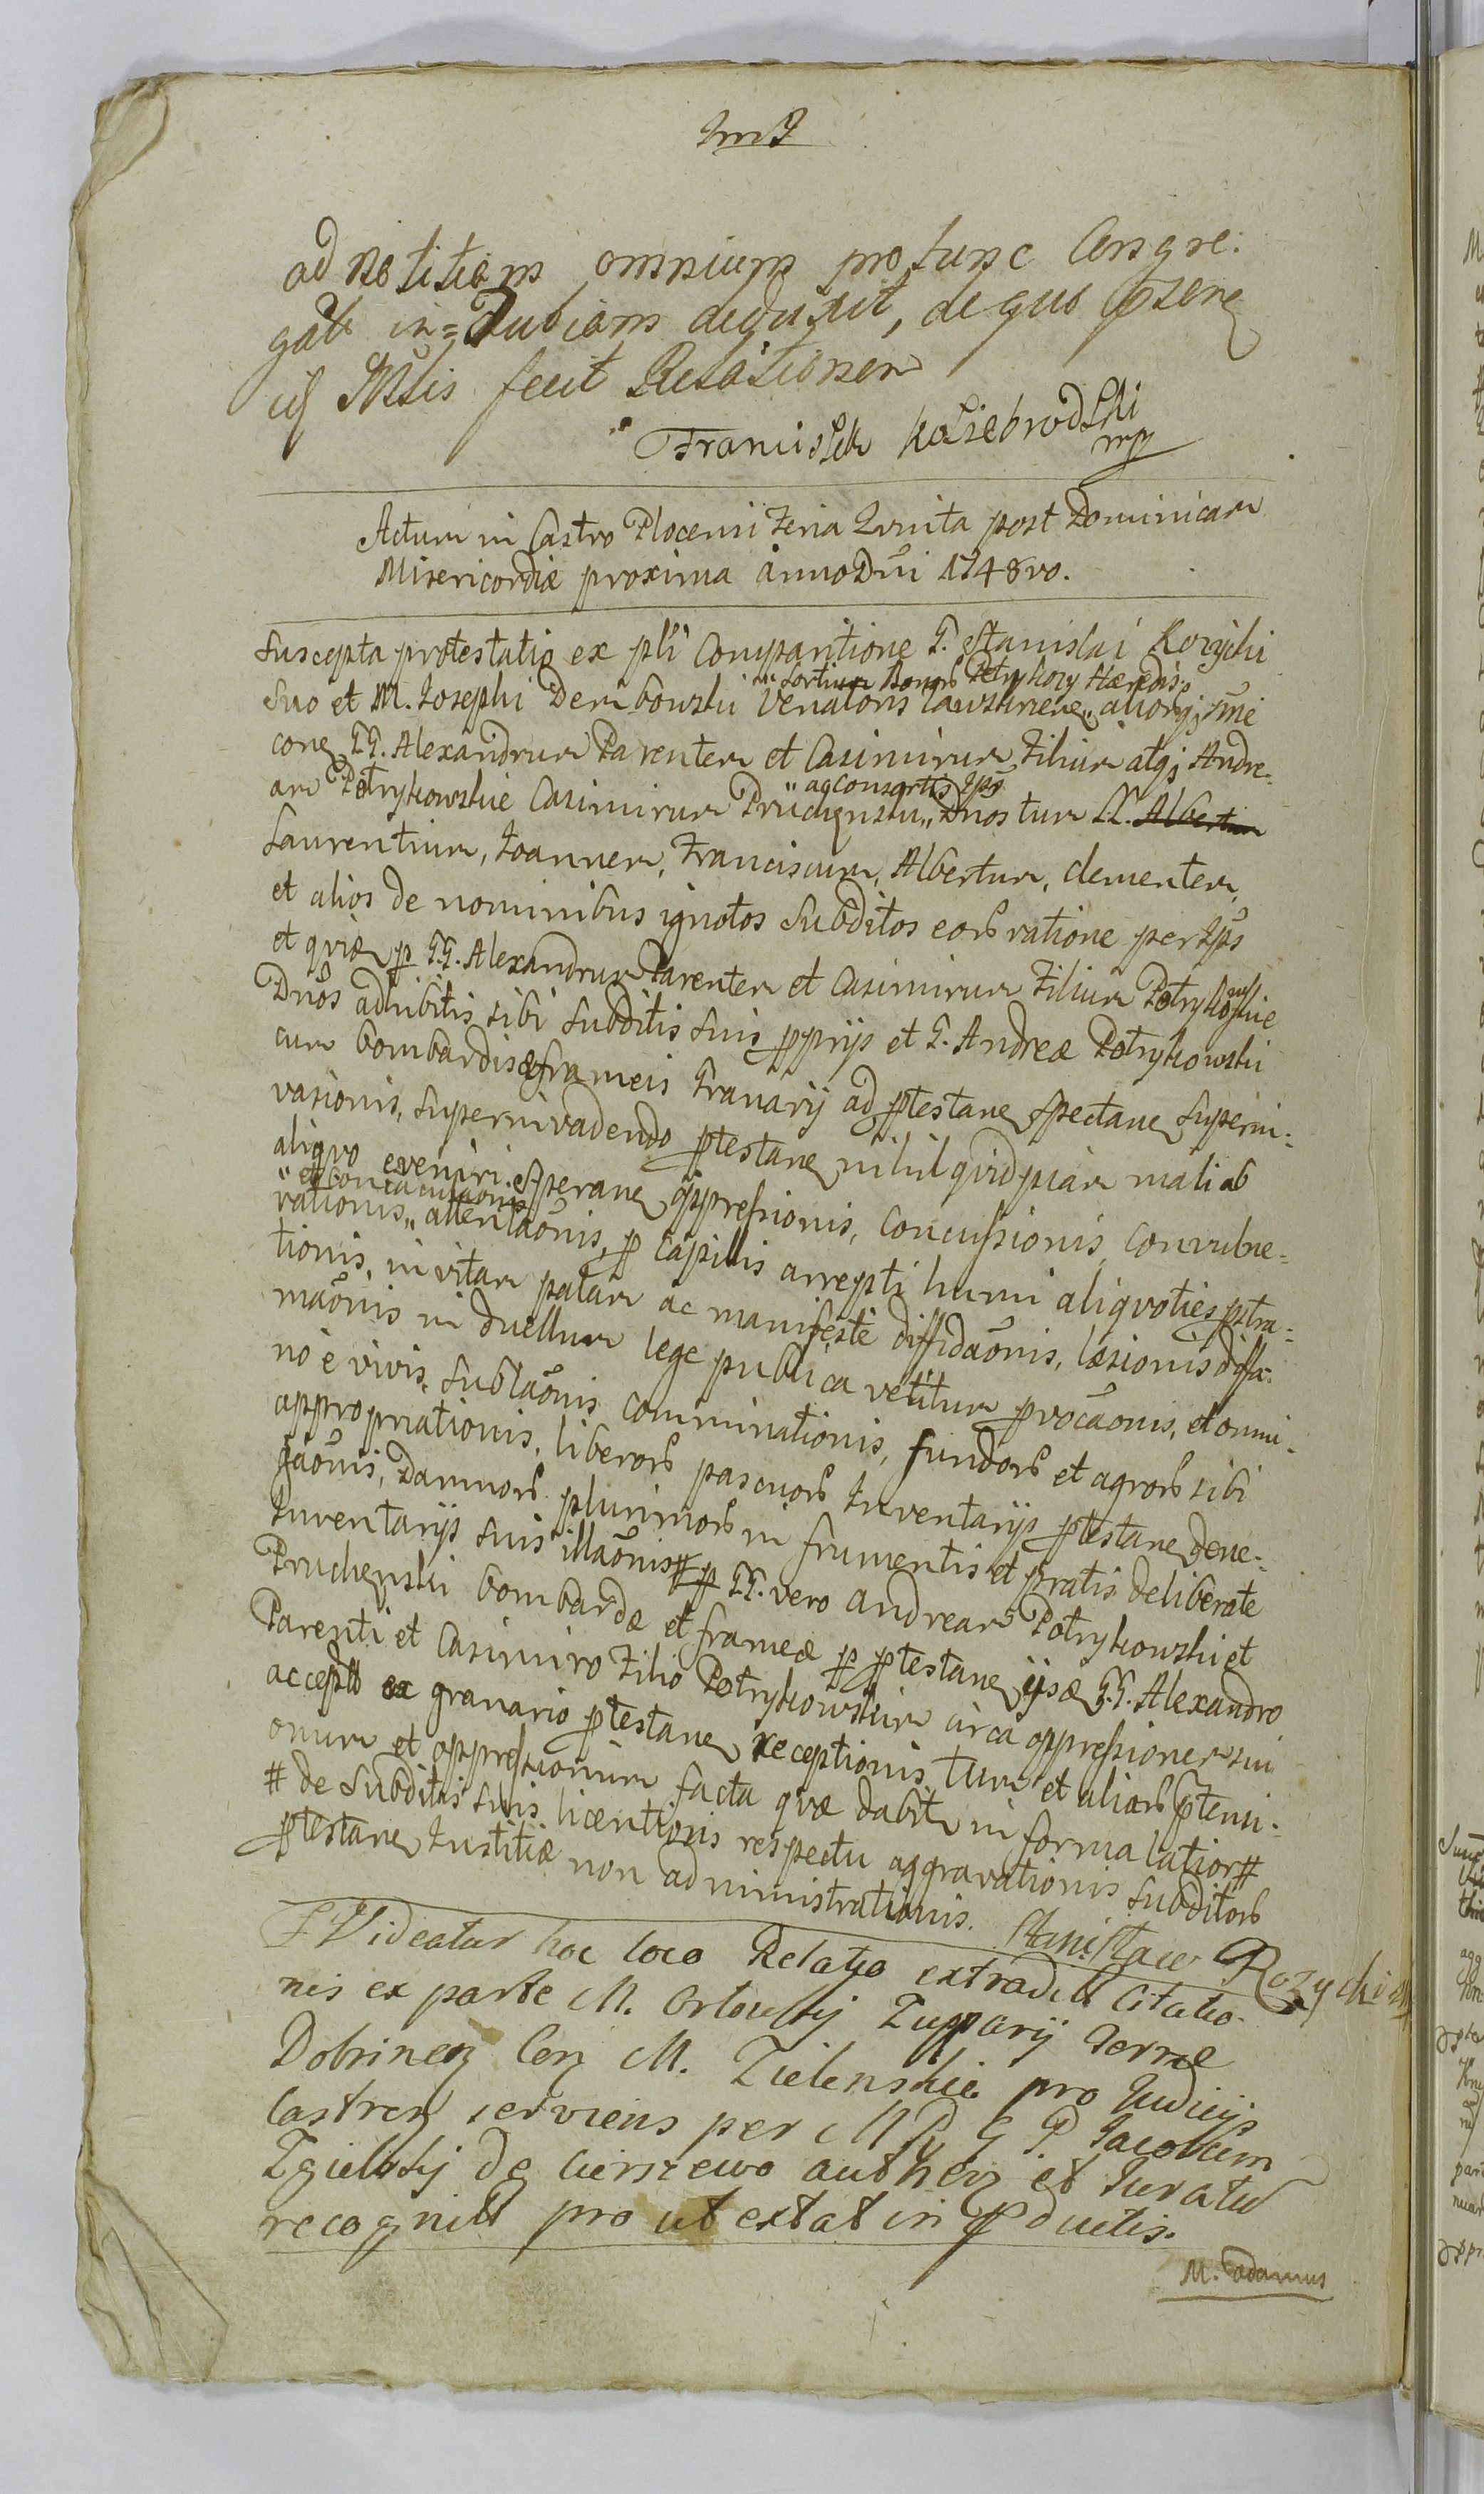 ad notitiam omnium pro tunc Congre:
gãt in dubiam deduxit, de quo praene
ijs Actis fecit Relationem
Franciszek Kosiebrodzki mp
Actum in Castro Plocensi Feria Qvinta post Dominicam
Misericordiæ proxima anno Dñi 1748vo.
Suscepta protestatio ex pľi Comparitione G. Stanislai Rozycki
sortium Bonorũ Potrykozy Hæredis
suo et M. Josephi Dembowski Venatoris Ciawskinens,, aliorqz nõie
cone GG. Alexandrum Parentem et Casimirum Filium atqz Andre-
ac Consortis Ips
am Potrykowskie Casimirum Pruchenski,, Dnos tum LL. Albertum
Laurentium, Joannem, Franciscum, Albertum, Clementem,
et alios de nominibus ignotos Subditos eorũ ratione per Ips
et qvia p GG. Alexandrum Parentem et Casimirum Filium Potrykowskie
Dnõs adhibitis sibi subditis suis pprijs et G. Andreæ Potrykowski
cum bombardis & frameis Granarij ad ptestane spectane superin-
vasionis, superinvadendo ptestane nihil qvidpiam mali ab
aliqvo eveniri sperane oppressionis, concussionis, convulne-
et conculcationis
rationis,, attentaõnis, p capillis arrepti humi aliqvoties ptra-
tionis, in vitam patam ac manifeste diffidaõnis, læsionis diffa-
maõnis in duellum lege publica vetitum provocaõnis, et omni-
no e vivis sublaõnis comminationis, fundorũ et agrorũ sibi
appropriationis, liberorũ pascuorũ Inventarijs ptestane dene-
gaõnis, Damnorũ plurimorũ in frumentis et pratis deliberate
Inventarijs suis illaõnis # p GG. vero Andream Potrykowski et
Pruchenski bombardæ et frameæ p ptestane ijsæ GG. Alexandro
Parenti et Casimiro Filio Potrykowskim circa oppressionem sui
accepto ex granario ptestane receptionis tum et aliarũ ptensi-
onum et oppressionum facta qvæ dabitr in forma latiori #
# de Subditis suis licentiosis respectu aggravationis subditorũ
ptestane Justitiæ non administrationis. Stanisław Rozycki mp
Videatur hoc loco Relatio extradit Citatio-
nis ex parte M. Orłowskij Zupparij Terræ
Dobrinen Con M. Zielenskie pro Judicijs
Castren serviens per M P G P. Jacobum
Zgielskij de Cierszewo authen et Juratũ
recognit pro ut extat in pductis.
M. Adamus